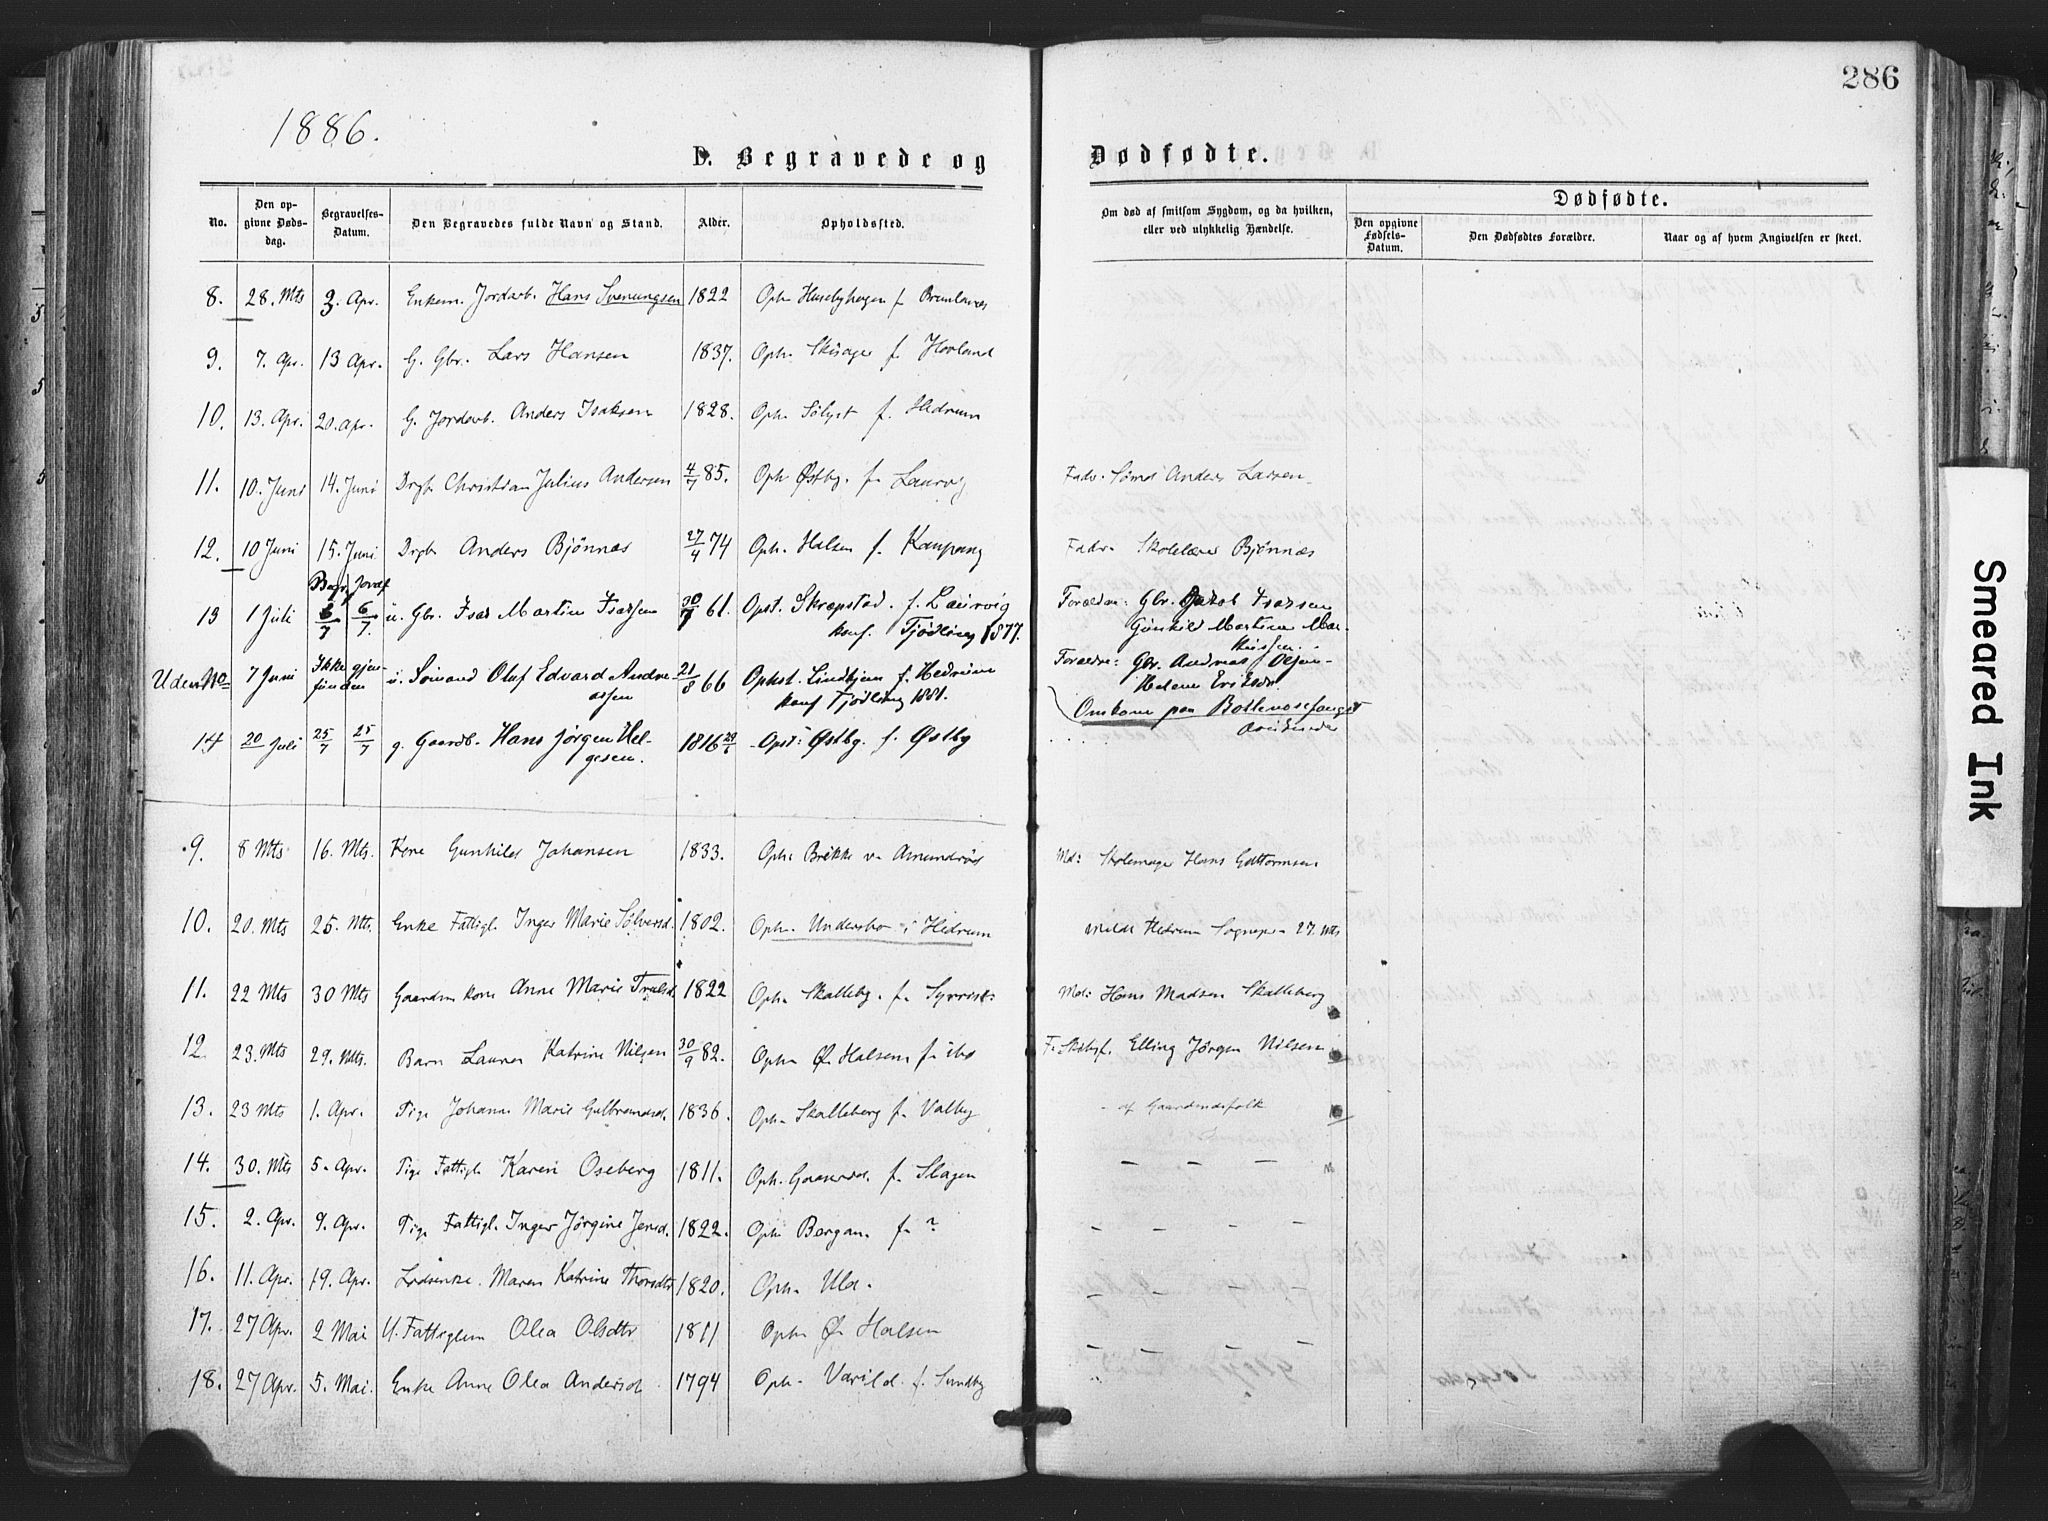 286
1886.
D. Begravede og Dødfødte.
No. Den opgivne Dødsdag. Begravelses-Datum. Den Begravedes fulde Navn og Stand. Alder. Opholdssted. Om død af smitsom Sygdom, og da hvilken, eller ved ulykkelig Hændelse. Dødfødte. Den opgivne Fødsels-Datum. Den Dødfødtes Forældre. Naar og af hvem Angivelsen er skeet.
8. 28. Mts 3. Apr. Enkem. Jordarb. Hans Svenungsen 1822 Oph. Husebyhagen f. Brunlanæs
9. 7. Apr. 13 Apr. G. Gbr. Lars Hansen 1837. Oph. Skisager f. Hovland
10. 13. Apr. 20. Apr. G. Jordarb. Anders Isaksen 1828. Oph. Sølyst f. Hedrum
11. 10. Juni 14. Juni Drgb. Christian Julius Andersen 4/7 85. Oph. Østby. f. Laurvig Fadr. Sømd Anders Larsen
12. 10 Juni 15. Juni Drgb Anders Bjønnes 27/4 74 Oph. Halsen f. Kaupang Fadr. Skolelærer Bjønnæs
Begr. Jordf
13 1 Juli 6/7 6/7. u. Gbr. Isak Martin Isaksen 30/7 61. Opst. Skrepstad. f. Laurvig Forældre: Gbr. Jakob Isaksen
konf. Tjødling 1877. Gunhild Martine Mar-
kussen.
Uden No 7 Juni Ikke gjen- u. Sømand Oluf Edvard Andre- 21/8 66 Ophst. Lindhjem f. Hedrum Forældre: Gbr. Andreas Olsen
funden assen konf Tjødling 1881. Helene Eriksdr.
Omkom paa Bottenosefangst
14 20 Juli 25/7 25/7 g. Gaardb. Hans Jørgen Hel- 1816 29/6 Opst: Østby. f. Østby
gesen.
9. 8 Mts 16. Mts. Kone Gunhild Johansen 1833. Oph. Brekke v. Amundrød Md: Skolemager Hans Guttormsen
10. 20. Mts 25. Mts. Enke Fattigl. Inger Marie Sølversd. 1802. Oph. Undersbo i Hedrum Meldt Hedrum Sognepr. 27. Mts
11. 22 Mts 30 Mts Gaardm kone Anne Marie Trulsd. 1822 Oph. Skalleby. f. Syrrist Md: Hans Madsen Skalleberg
12. 23. Mts 29. Mts. Barn Laura Katrine Nilsen 30/9 82. Oph. Ø. Halsen f. ibd F. Skibsf. Elling Jørgen Nilsen
13. 23 Mts 1. Apr. Pige Johanne Marie Gulbrandsd. 1836. Oph. Skalleberg f. Valby - af Gaardmdsfolk
14. 30. Mts 5. Apr. Pige Fattigl. Karen Oseberg 1811. Oph. f. Slagen — — —
15. 2. Apr. 9. Apr. Pige Fattigl. Inger Jørgine Jensd. 1822. Oph. Bergan f. ? — — —
16. 11. Apr. 19. Apr. Lodsenke. Maren Katrine Thorsdtr 1820. Oph. Ula. — — — —
17. 27 Apr. 2 Mai U. Fattiglem Olea Olsdtr 1811 Oph. Ø. Halsen — — — —
18. 27 Apr. 5. Mai. Enke Anne Olea Andersd 1794 Oph. Varild. f. Sundby
Smeared Ink